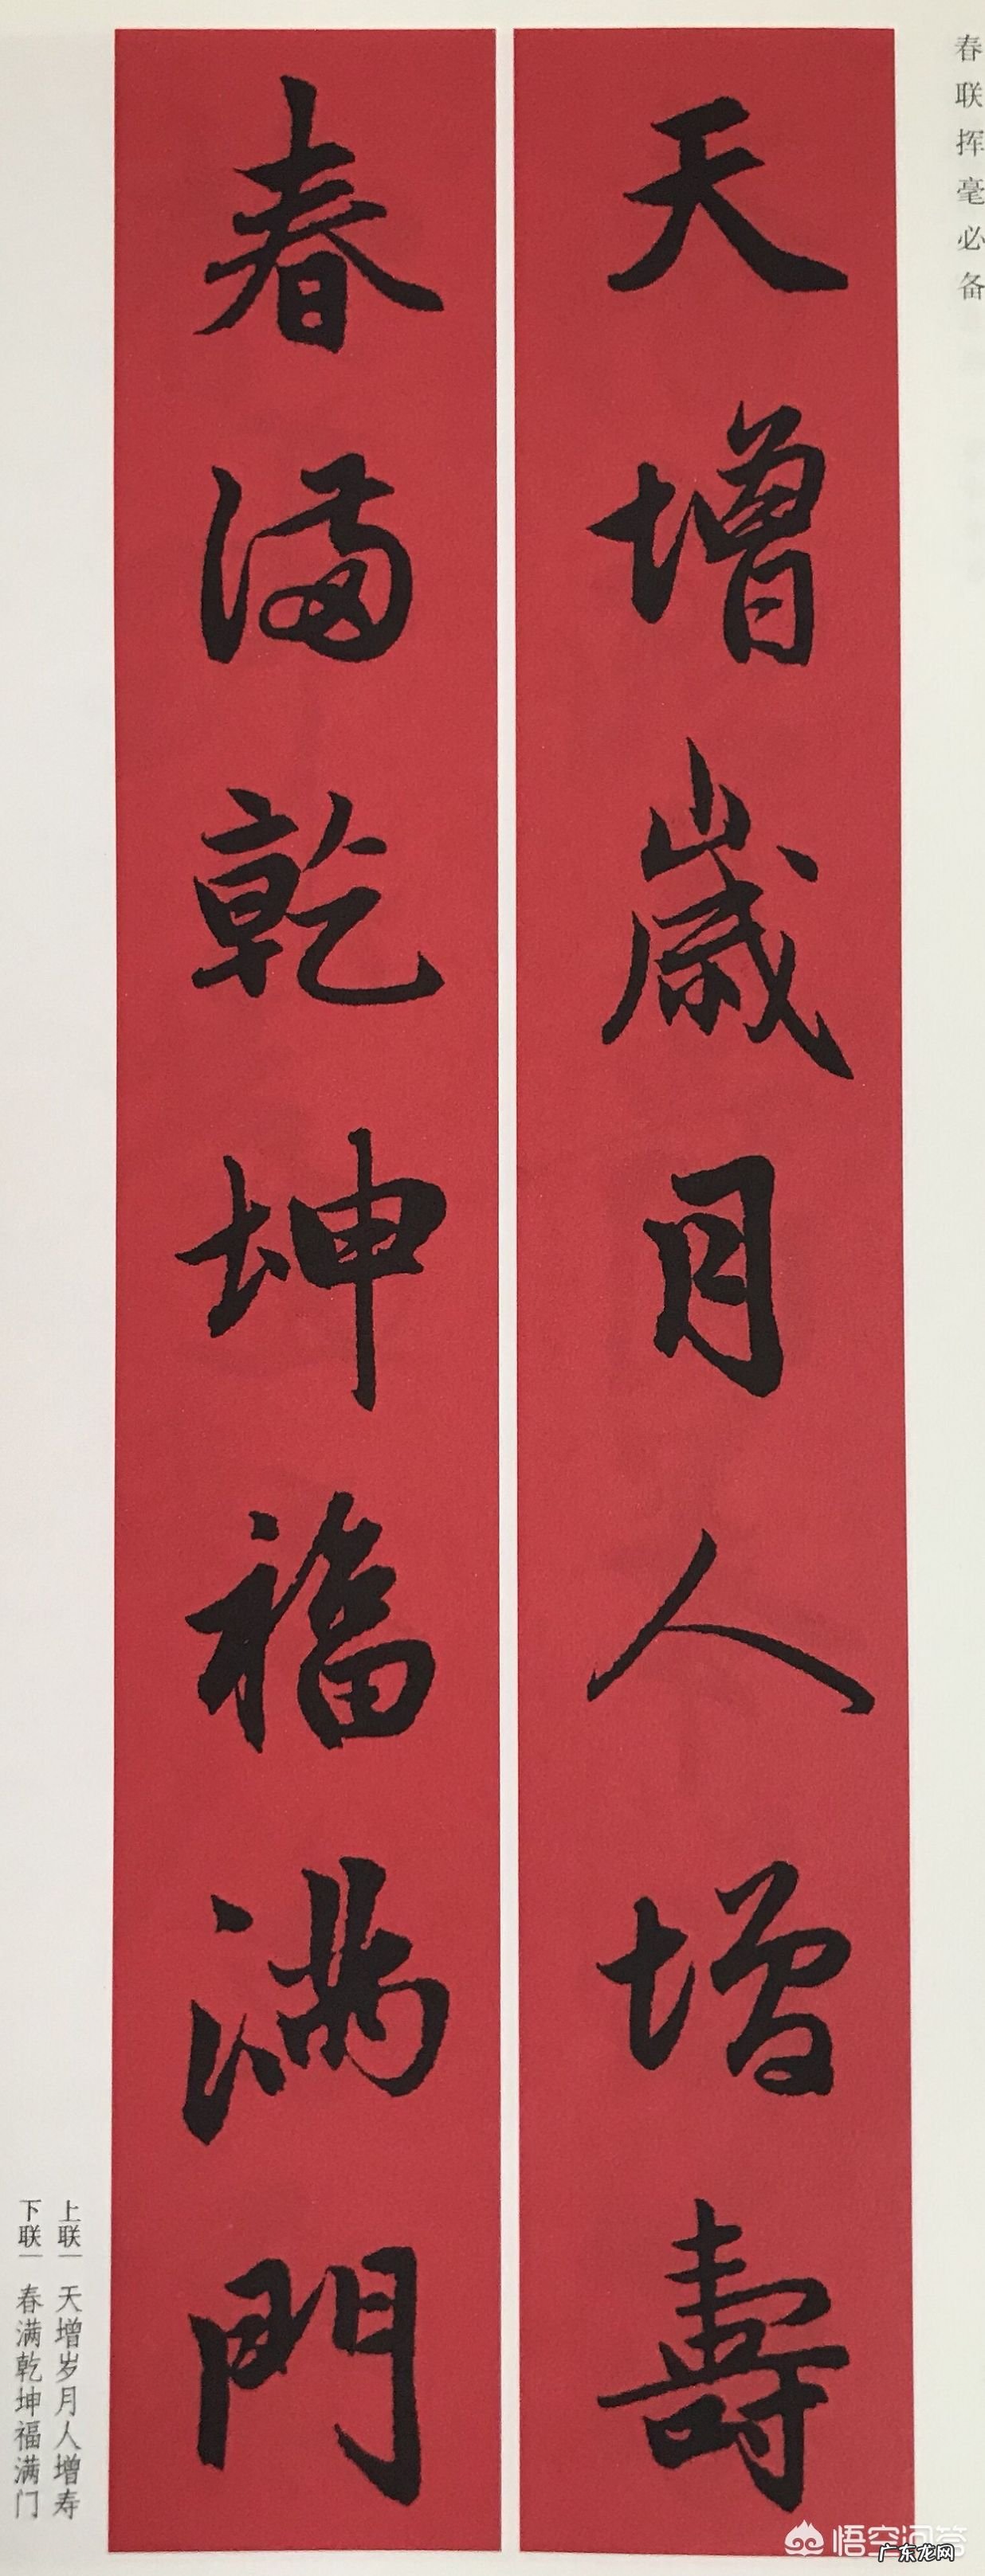 春联挥毫必备
天增歲月人增壽
春满乾坤福满門
上联|天增岁月人增寿
下联|春满乾坤福满门
悟空问答
广东龙网